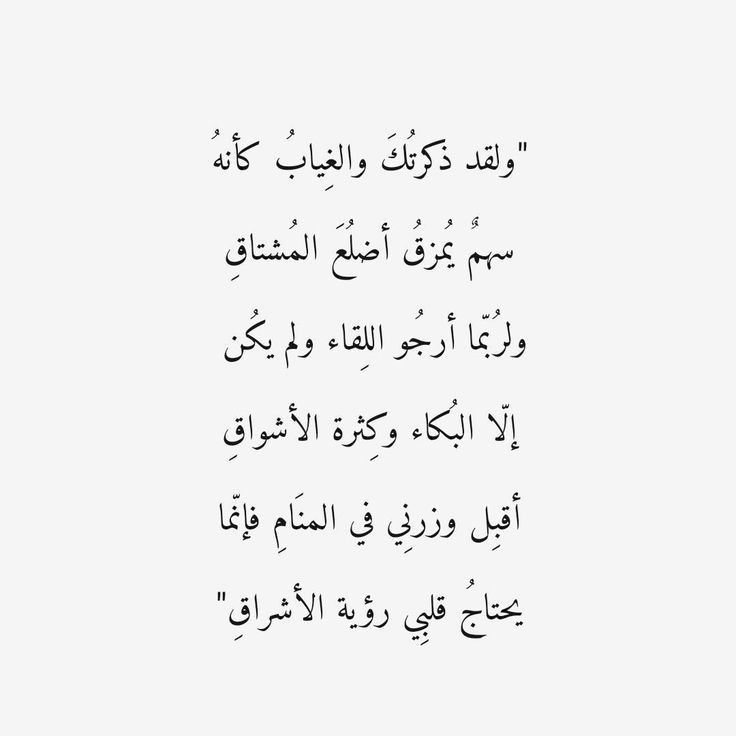 "ولقد ذكرتُكَ والغِيابُ كأنهُ
سهمٌ يُمزقُ أضلُعَ المُشتاقِ
ولرُبّما أرجُو اللِقاء ولم يكُن
إلّا البُكاء وكِثرة الأشواقِ
أقبِل وزرنِي في المنَامِ فإنّما
يحتاجُ قلبِي رؤية الأشراقِ"